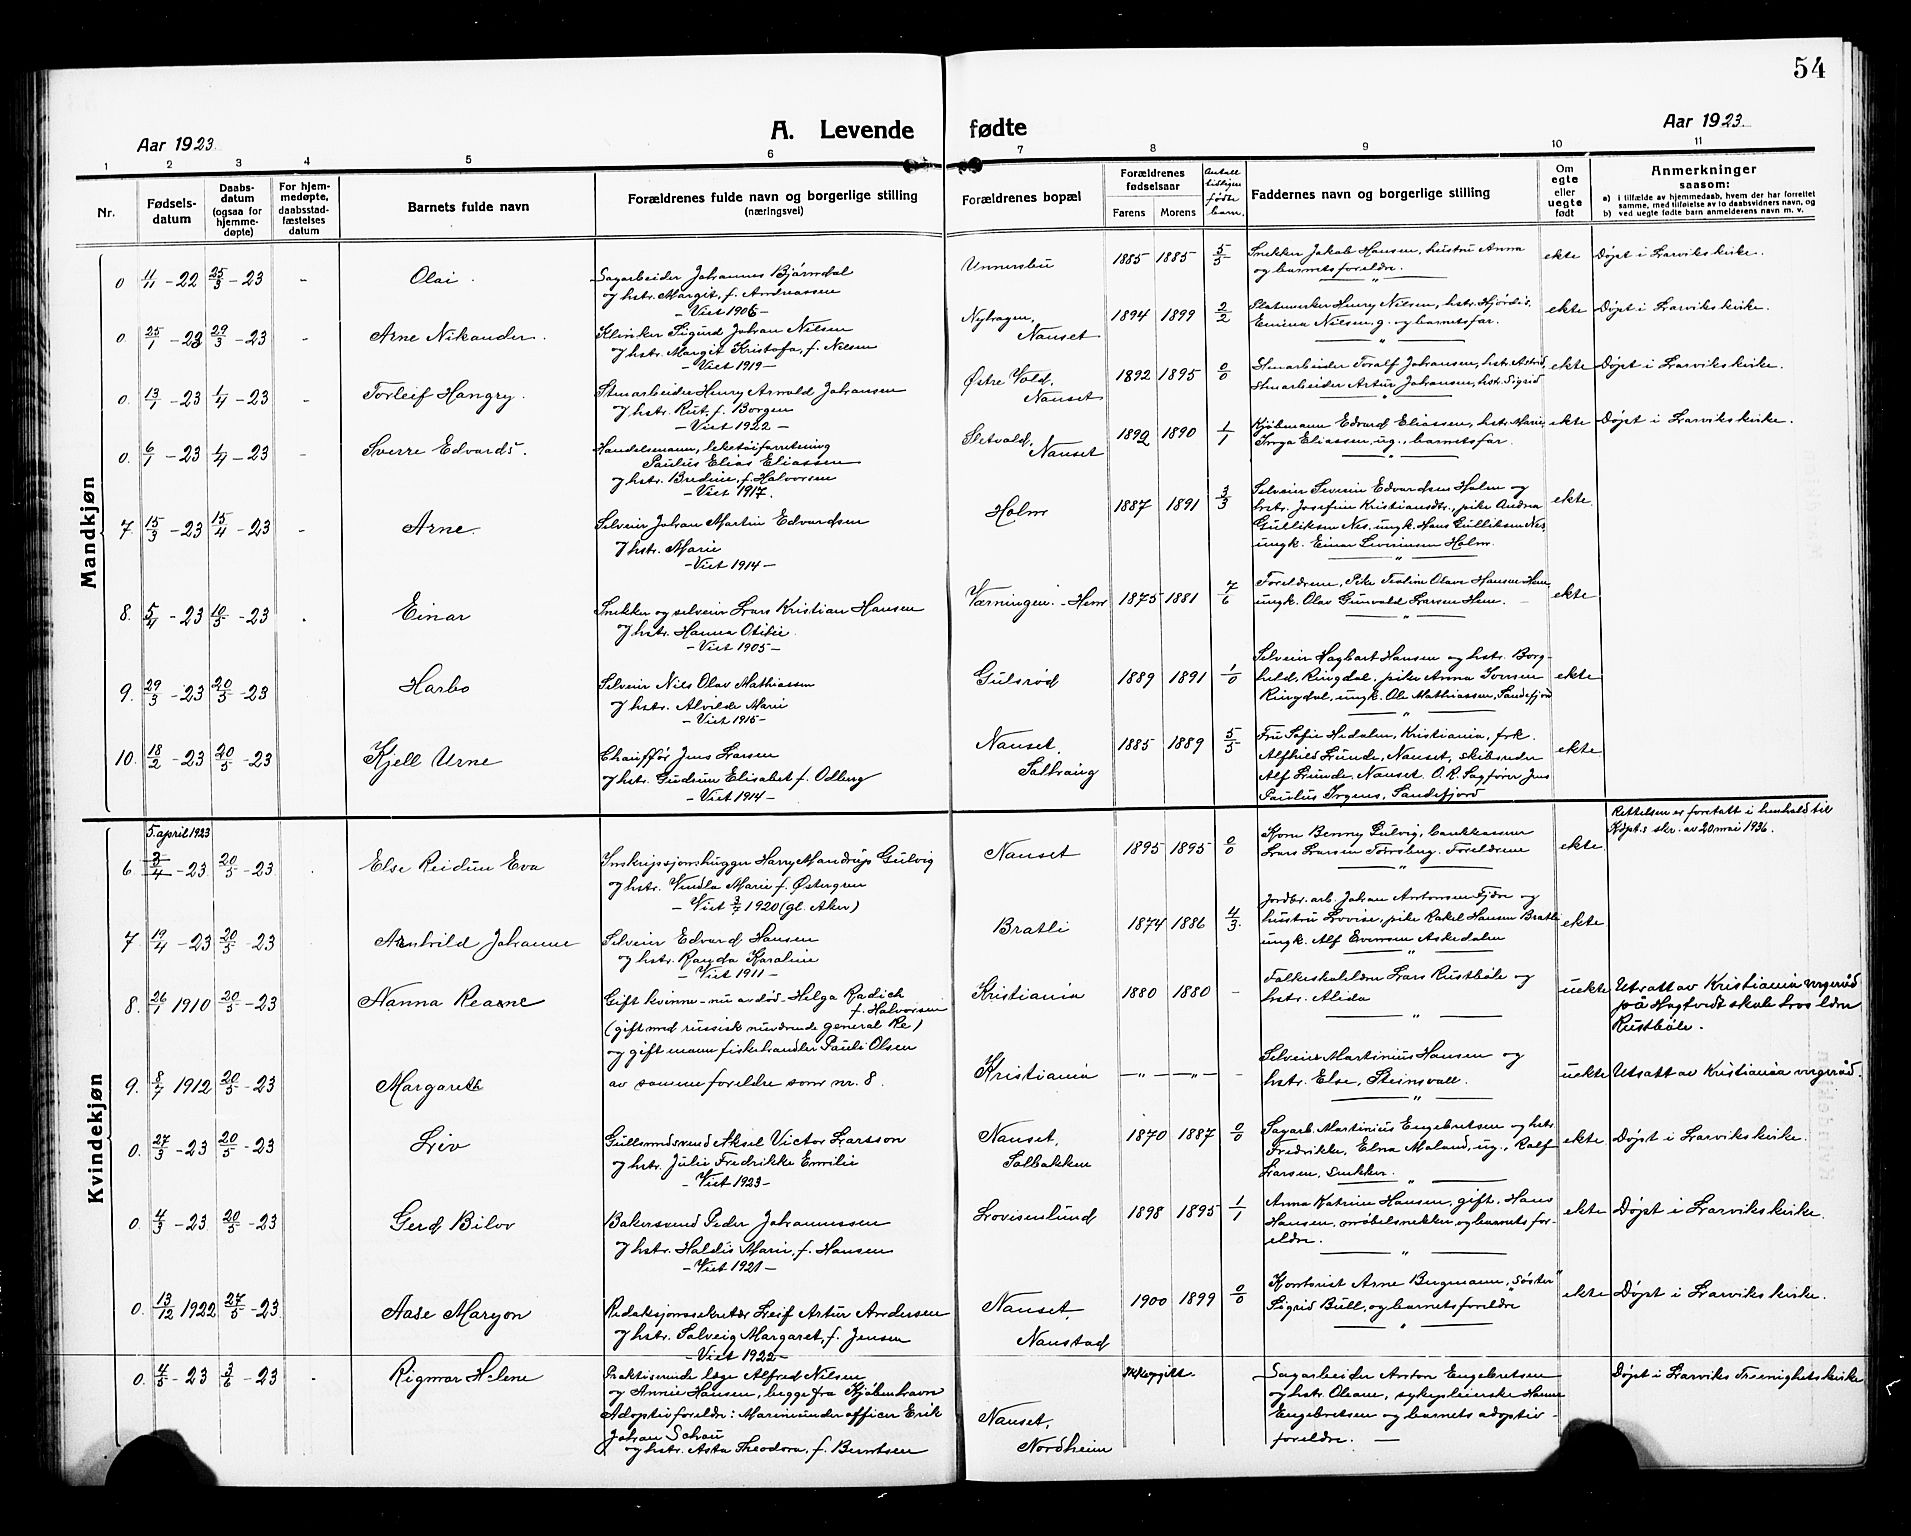 54
Aar 1923.
A. Levende fødte
Aar 1923.
1 2 3 4 5 6 7 8 9 10 11
Nr.
Fødsels-
datum
Daabs-
datum
(ogsaa for
hjemme-
døpte)
For hjem-
medøpte,
daabsstad-
fæstelses
datum
Barnets fulde navn
Forældrenes fulde navn og borgerlige stilling
(næringsvei)
Forældrenes bopæl
Forældrenes
fødselsaar
Farens Morens
Antall
tidligere
fødte
barn.
Faddernes navn og borgerlige stilling
Om
egte
eller
uegte
født
Anmerkninger
saasom:
a) i tilfælde av hjemmedaab, hvem der har forrettet
samme, med tilføielse av to daabsvidners navn, og
b) ved uegte fødte barn anmelderens navn m. v.
Mandkjøn
0 11/11 - 22 25/3 - 23 - Olai.
Sagarbeider Johannes Bjørndal
og hstr. Margit, f. Andreassen
- Viet 1906 -
Unnersbu 1885 1885 5/5
Snekker Jakob Hansen, hustru Anna
og barnets foreldre.
ekte Døpt i Larviks kirke.
0. 25/1 - 23 29/3 - 23 - Arne Nikander.
Klinker Sigurd Johan Nilsen
og hstr. Margit Kristofa, f. Nilsen
- Viet 1919 -
Nyhagen,
Nanset
1894 1899 2/2
Platearbeider Henry Nilsen, hstr. Hjørdis,
Emma Nilsen, g. og barnets far.
ekte Døpt i Larviks kirke.
0. 13/1 - 23 1/4 - 23 - Torleif Hangry.
Stenarbeider Henry Arnold Johansen
og hstr. Rut, f. Borgen
- Viet 1922 -
Østre Vold,
Nanset
1892 1895 0/0
Stenarbeider Toralf Johansen, hstr. Astrid,
Stenarbeider Artur Johansen, hstr. Sigrid
ekte Døpt i Larviks kirke.
0. 6/1 - 23 1/4 - 23 Sverre Edvards.
Handelsmann, leketøiforretning
Paulus Elias Eliassen
og hstr. Bredine, f. Halvorsen
- Viet 1917.
Sletvold,
Nanset
1892 1890 1/1
Kjøbmann Edvard Eliassen, hstr. Marie,
Inga Eliassen, ug., barnets far.
ekte Døpt i Larviks kirke.
7. 15/3 - 23 15/4 - 23 - Arne.
Selveier Johan Martin Edvardsen
og hstr. Marie
- Viet 1914 -
Holm 1887 1891 3/3
Selveier Severin Edvardsen Holm og
hstr. Josefine Kristiansdtr., pike Andrea
Gulliksen Nes, ungk. Hans Gulliksen Nes,
ungk. Einar Severinsen Holm.
ekte
8. 5/4 - 23 10/5 - 23 Einar
Snekker og selveier Lars Kristian Hansen
og hstr. Hanna Otilie.
- Viet 1905 -
Værningen - Hem 1875 1881 7/6
Foreldrene, Pike Olava Hansen Hem,
ungk. Olav Gunvald Larsen Hem.
ekte
9. 29/3 - 23 20/5 - 23 Harbo
Selveier Nils Olav Mathiassen
og hstr. Alvilde Marie
- Viet 1915 -
Gulsrød 1889 1891 1/0
Selveier Hagbart Hansen og hstr. Borg-
hild, Ringdal, pike Anna Iversen
Ringdal, ungk. Ole Mathiassen, Sandefjord
ekte
10. 18/2 - 23 20/5 - 23 Kjell Urne
Chauffør Jens Larsen
og hstr. Gudrun Elisabet f. Odberg
- Viet 1914 -
Nanset,
Solhaug
1885 1889 5/5
Fru Sofie Hedalen, Kristiania, frk.
Alfhild Lunde, Nanset, skibsreder
Alf Lunde, Nanset. O.R. Sagfører Jens
Paulus Irgens, Sandefjord
ekte
Kvindekjøn
5. april 1923
6 3/4 - 23 20/5 - 23 Else Reidun Eva
Inskripsjonshugger Harry Mandrup Gulvig
og hstr. Vendla Marie f. Østergren
- Viet 3/7 1920 (gl. Aker)
Nanset 1895 1895 0/0
Korn Benny Gulvig, bankkasserer
Lars Larsen Torsberg. Foreldrene
ekte
Rettelsen er foretatt i henhold til
Kdpt.s skr. av 20 mai 1936.
7 19/4 - 23 20/5 - 23 Arnhild Johanne
Selveier Edvard Hansen
og hstr. Randa Karoline
- Viet 1911 -
Bratli 1874 1886 4/3.
Jordbr. arb. Johan Antonsen Fjære og
hustru Lovise, pike Rakel Hansen Bratli
ungk. Alf Evensen Askedalen
ekte
8. 26/1 1910 20/5 - 23 Nanna Rearne
Gift kvinne - nu avdød - Helga Radich
f. Halvorsen
(gift med russisk nuværende general Re)
og gift mann fiskehandler Pauli Olsen
Kristiania 1880 1880 -
Folkeskolelærer Lars Rustbøle og
hstr. Alida
uekte Utsatt av Kristiania vergeråd
på Hagtvedt skole hos lærer
Rustbøle.
9. 8/7 1912 20/5 - 23 Margareth
av samme foreldre som nr. 8.
Kristiania -"- -"- -
Selveier Martinius Hansen og
hstr. Else, Steinsvall.
uekte Utsatt av Kristiania vergeråd.
0. 27/3 - 23 20/5 - 23 Liv
Gullsmedsvend Aksel Victor Larsson
og hstr. Julie Fredrikke Emilie
- Viet 1923 -
Nanset,
Solbakken
1870 1887 0/0
Sagarb. Martinius Engebretsen og hstr.
Fredrikke, Elna Moland, ug., Ralf
Larsen, snekker.
ekte Døpt i Larviks kirke.
0. 4/3 - 23 20/5 - 23 Gerd Bilov
Bakersvend Peder Johannessen
og hstr. Haldis Marie, f. Hansen
- Viet 1921 -
Lovisenlund 1898 1895 1/1
Anna Katrine Hansen, gift, Hans
Hansen, møbelsnekker og barnets for-
eldre.
ekte Døpt i Larviks kirke.
0. 13/12 1922 27/5 - 23. Aase Maryon
Redaksjonssekretær Leif Artur Andersen
og hstr. Solveig Margaret, f. Jensen
- Viet 1922 -
Nanset,
Nanstad
1900 1899 0/0
Kontorist Arne Bergmann, "søster"
Sigrid Bull, og barnets foreldre
ekte Døpt i Larviks kirke.
0. 4/5 - 23 3/6 - 23 - Rigmor Helene
Praktiserende læge Alfred Nilsen
og Annie Hansen, begge fra Kjøbenhavn
Adoptivforeldre: Marineunderofficer Erik
Johan Schau
og hstr. Asta Theodora, f. Berntsen
Nanset,
Nordheim
Ikke opgitt.
Sagarbeider Anton Engebretsen
og hstr. Oleane, sykepleierske Hanna
Engebretsen og barnets adoptiv-
foreldre. -
Døpt i Larviks Treenighetskirke